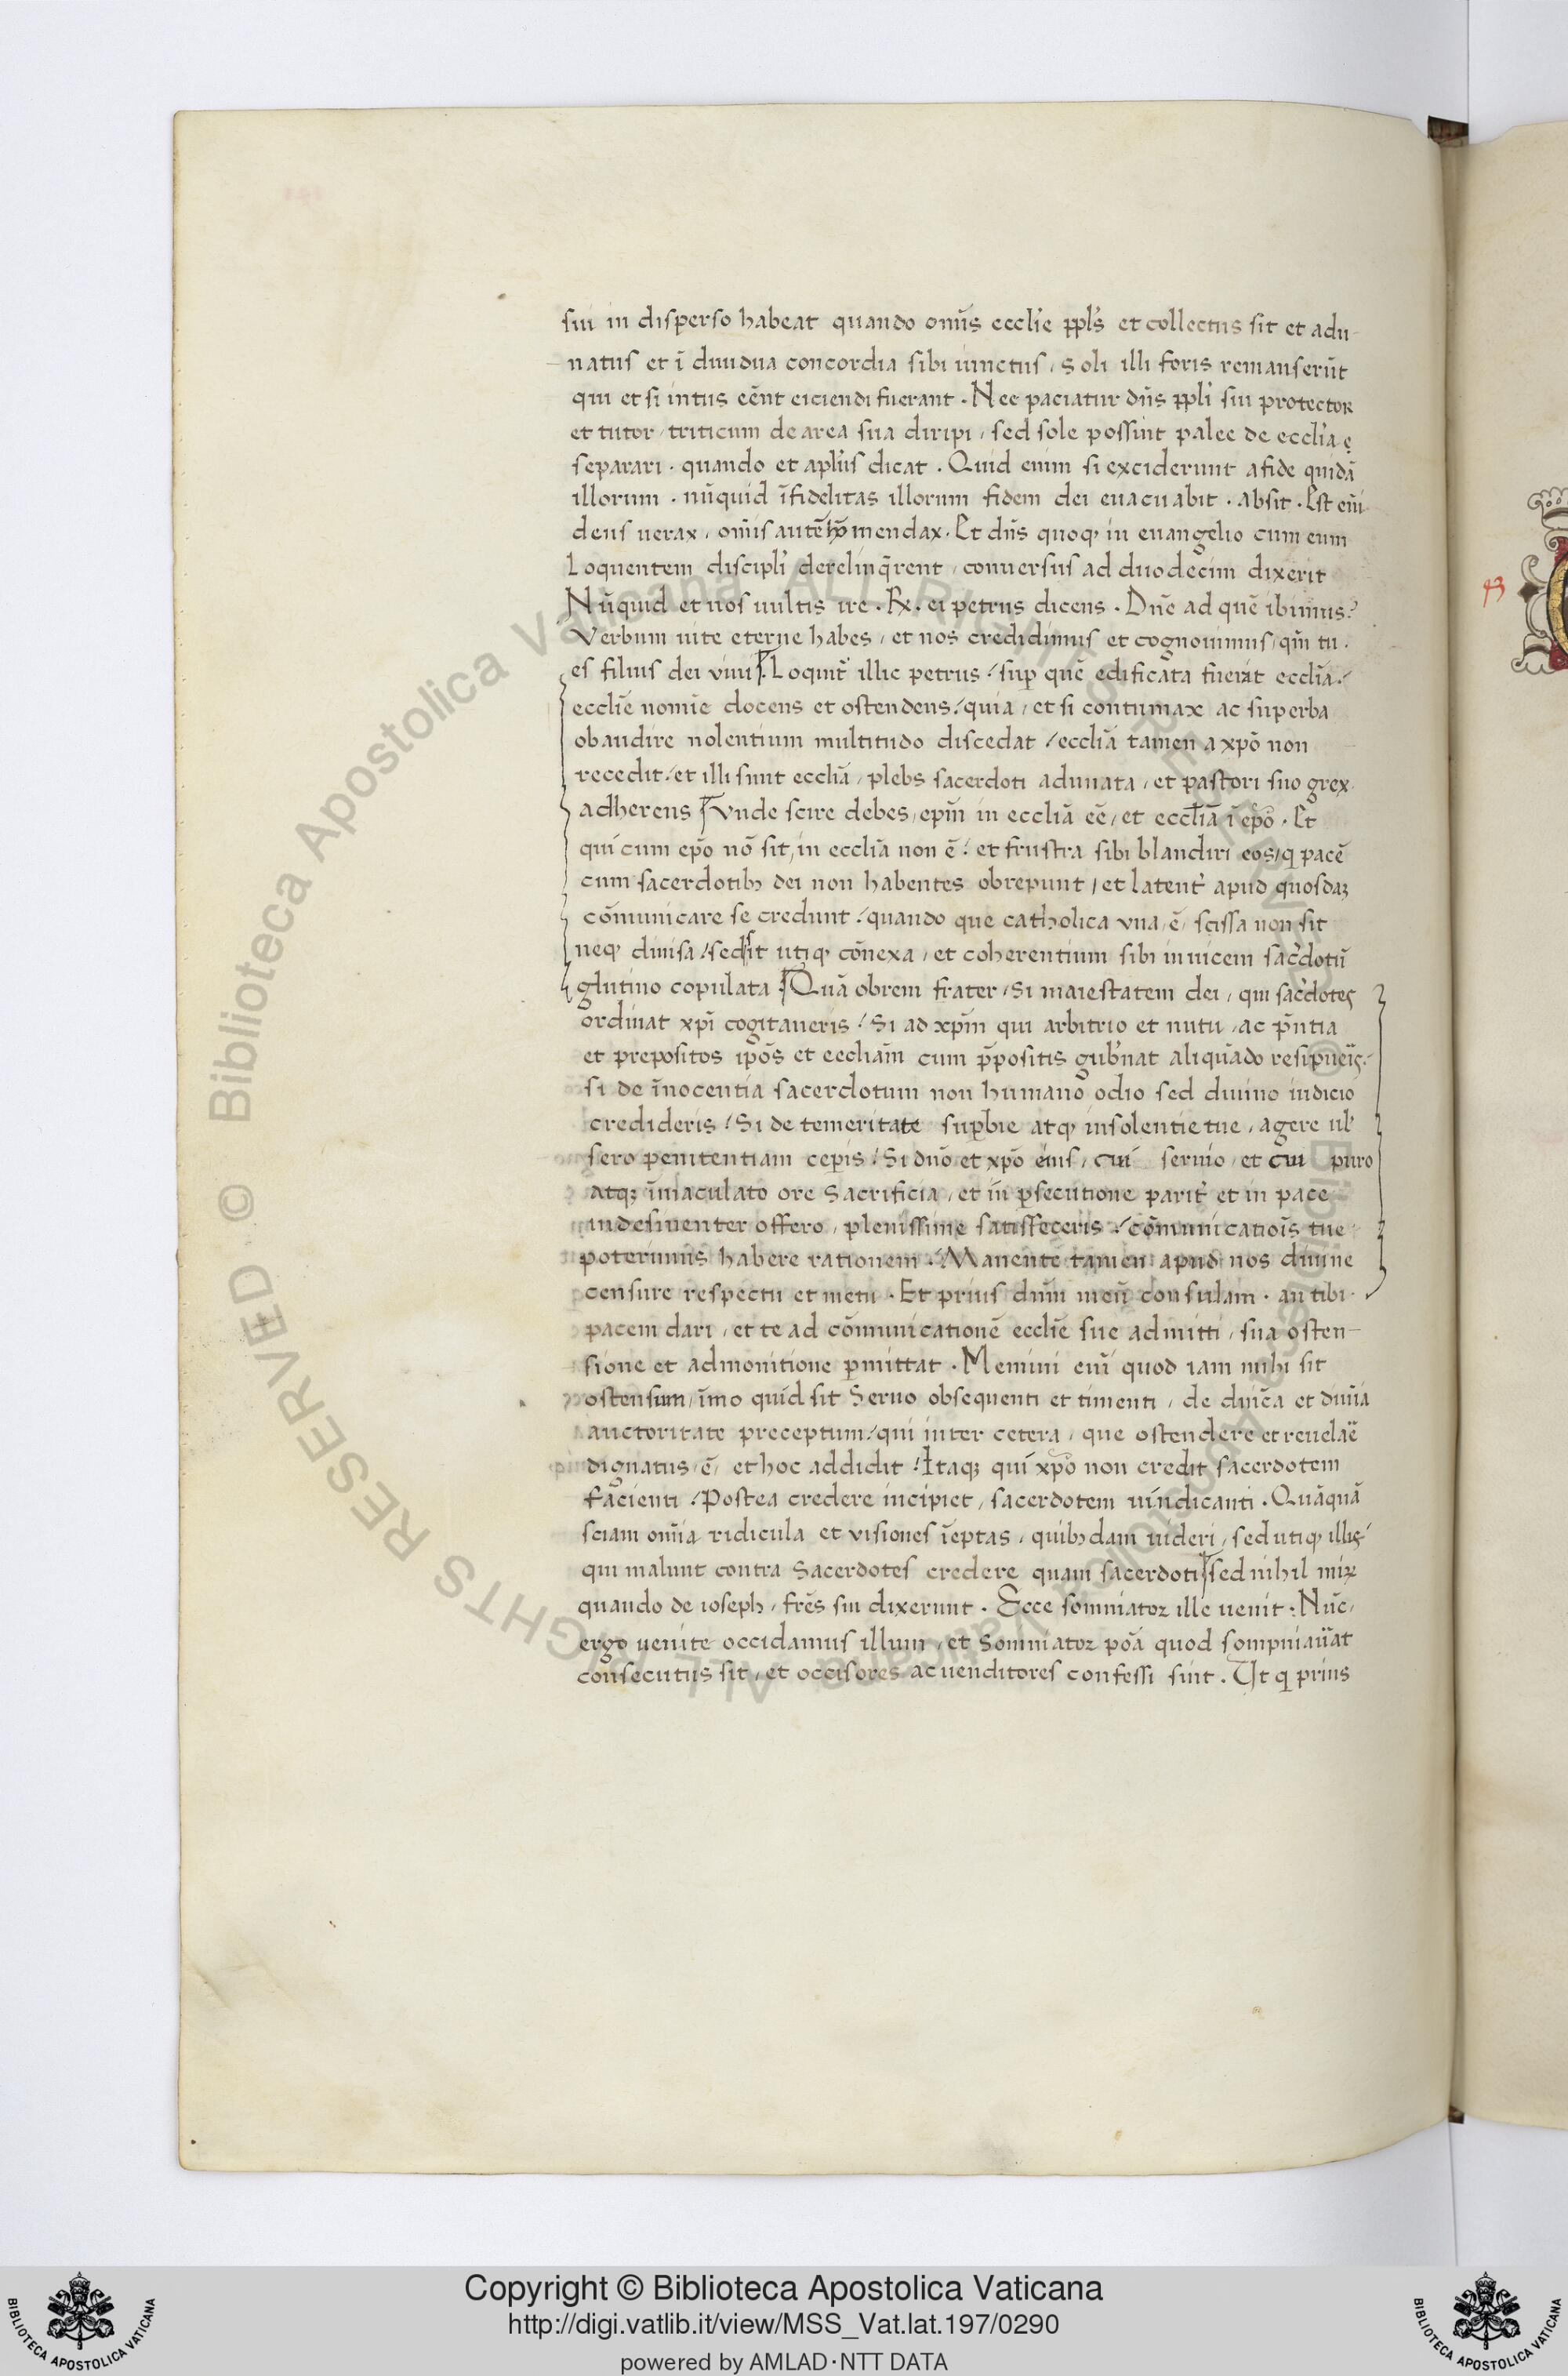 sui in disperso habeat quando om̄s eccl̓ie ppl̓s et collectus sit et adu-
natus et ī diuidua concordia sibi iunctus, Soli illi foris remanserūt
qui et si intus eēnt eiciendi fuerant . Nec paciatur dn̄s ppl̓i sui protector
et tutor, triticum de area sua diripi, sed sole possint palee de eccl̓ia ę
separari . quando et apl̓us dicat . Quid enim si exciderunt a fide quidā
illorum . nūquid īfidelitas illorum fidem dei euacuabit . absit . Est eni̅
deus uerax, om̄is autē hō mendax. Et dn̄s quoqꝫ in euangelio cum eum
Loquentem discipl̓i derelinq̄rent, conuersus ad duodecim dixerit
Nūquid et uos uultis ire . Rx. ei petrus dicens . Dn̄e ad quē ibimus?
Verbum uite eterne habes, et nos credidimus et cognouimus, qm̄ tu .
es filius dei viui. Loquit᷑ illic petrus / sup quē edificata fuerat eccl̄ia./
eccl̄ie nomīe docens et ostendens / quia, et si contumax ac superba
obaudire nolentium multitudo discedat / eccl̄ia tamen a xp̄o non
recedit / et illi sunt eccl̄ia, plebs sacerdoti adunata, et pastori suo grex
adherens Vnde scire debes, ep̄m in eccl̄ia eē, et eccl̄iā ī ep̄o . Et
qui cum ep̄o nō sit, in eccl̄ia non ē / et frustra sibi blandiri eos, q pacē
cum sacerdotibꝫ dei non habentes obrepunt, et latent᷑ apud quosdaꝫ
cōmunicare se credunt / quando que catholica vna, ē, scissa non sit
neqꝫ diuisa / sed sit utiqꝫ cōnexa, et coherentium sibi inuicem sac᷑dotū
glutino copulata . Quā obrem frater, Si maiestatem dei, qui sac᷑dotes
ordinat xp̄i cogitaueris / Si ad xp̄m qui arbitrio et nutu, ac p̄ntia
et prepositos ip̄os et eccliam̄ cum p̄positis gub᷑nat aliquādo respueis̄.
si de īnocentia sacerdotum non humano odio sed diuino iudicio
credideris / Si de temeritate supbie atqꝫ insolentie tue, agere ul̓
sero penitentiam ceperis / Si dn̄o et xp̄o eius, cui seruio, et cui puro
atqꝫ īmaculato ore Sacrificia, et in psecutione parit᷑ et in pace
indesinenter offero, plenissime satisfeceris / cōmunicatiōis tue
poterimus habere rationem . Manente tamen apud nos diuine
censure respectu et metu . Et prius dn̄m meū consulam . an tibi .
pacem dari, et te ad cōmunicationē eccl̄ie sue admitti, sua osten-
sione et admonitione pmittat . Memini eni̅ quod iam mihi sit
ostensum, īmo quid sit Seruo obsequenti et timenti, de dn̄ica et diuīa
auctoritate preceptum / qui inter cetera, que ostendere et reuelaē
dignatus, ē, et hoc addidit / Itaqꝫ qui xp̄o non credit sacerdotem
facienti / Postea credere incipiet, sacerdotem uindicanti . Quāquā
sciam om̄ia ridicula et visiones īeptas, quibꝫdam uideri, sed utiqꝫ illis
qui malunt contra Sacerdotes credere quam sacerdoti sed nihil miꝝ
quando de ioseph, frēs sui dixerunt . Ecce somniator ille uenit : Nūc,
ergo uenite occidamus illum, et Somniator poā quod sompniau̅at
consecutus sit, et occisores ac uenditores confessi sint . Ut q prius
Copyright © Biblioteca Apostolica Vaticana
http://digi.vatlib.it/view/MSS_Vat.lat.197/0290
powered by AMLAD·NTT DATA
BIBLIOTECA APOSTOLICA VATICANA
BIBLIOTECA APOSTOLICA VATICANA
© Biblioteca Apostolica Vaticana ALL RIGHTS RESERVED
© Biblioteca Apostolica Vaticana ALL RIGHTS RESERVED